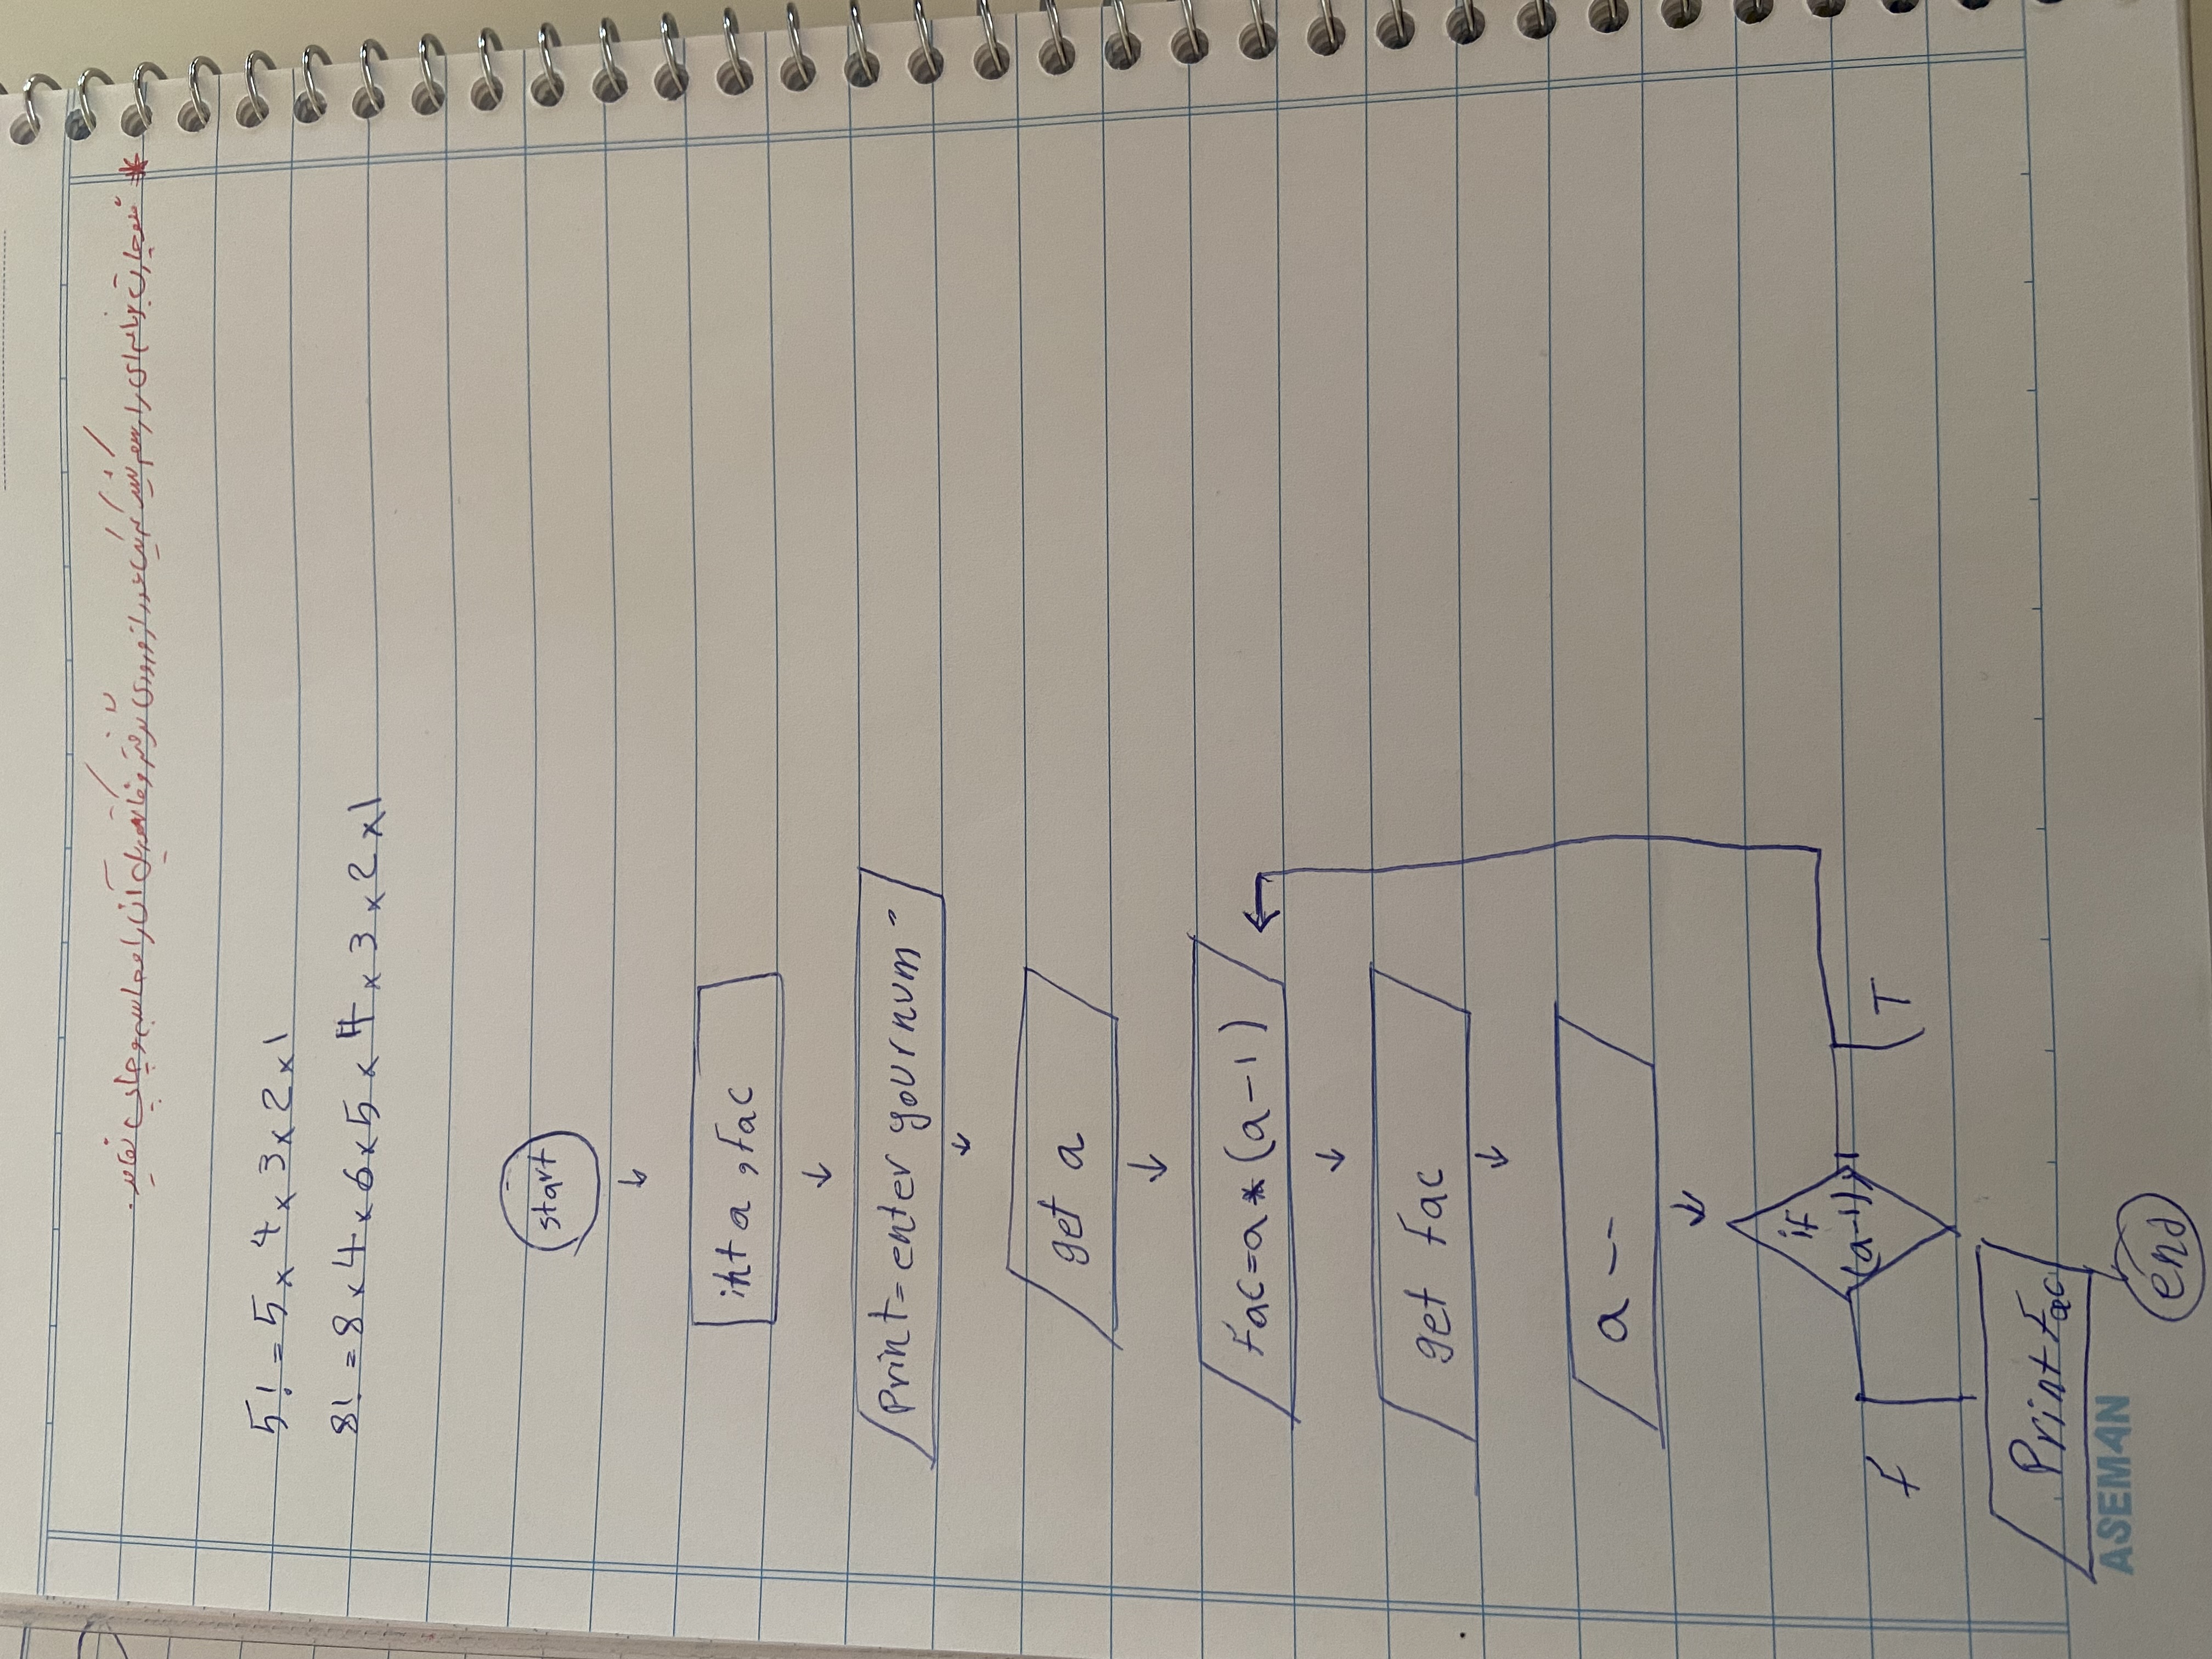 * فلوچارت برنامه ای را رسم کنید که یک عدد از ورودی گرفته و فاکتوریل آن را محاسبه و چاپ نماید.
5! = 5 × 4 × 3 × 2 × 1
8! = 8 × 4 × 6 × 5 × 4 × 3 × 2 × 1
start
int a , Fac
Print = enter your num "
get a
Fac = a * (a - 1)
get Fac
a --
if
(a-1)>1
f
T
Print Fac
ASEMAN
end